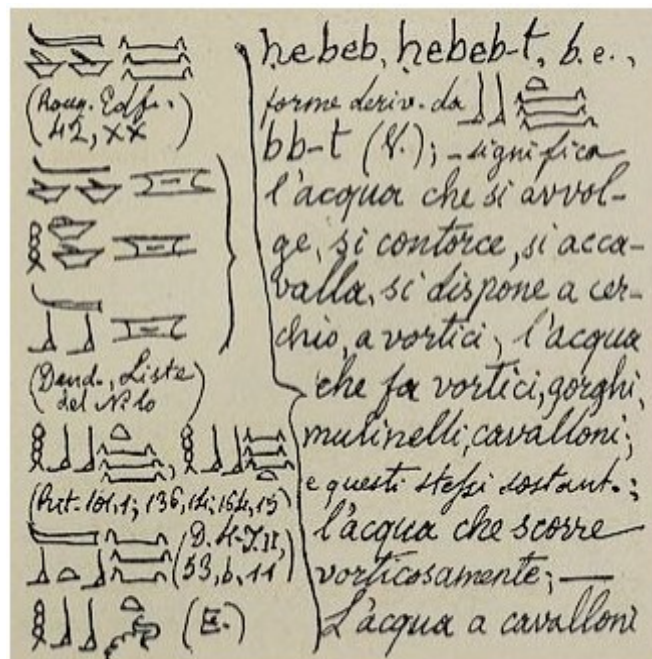 (Roug. Edfu.
42, XX
(Dend., Liste
del Nilo)
(hist. 101,1; 136,14; 164,13)
(D. H-J. II,
53, b, 11)
(E.)
ḥebeb, ḥebeb-t, b. e.,
forme deriv. da
bb-t (V.); – significa
l'acqua che si avvol-
ge, si contorce, si acca-
valla, si dispone a cer-
chio, a vortici; l'acqua
che fa vortici, gorghi,
mulinelli, cavalloni;
e questi stessi sostant.;
l'acqua che scorre
vorticosamente; —
L'acqua a cavalloni